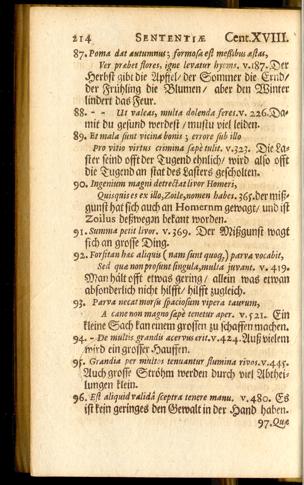 214 SENTENTIÆ Cent.XVIII.
87. Poma dat autumnus; formosa est messibus æstas,
Ver præbet flores, igne levatur hyems. v.187. Der
Herbst gibt die Apffel/ der Sommer die Ernd/
der Frühling die Blumen/ aber den Winter
lindert das Feur.
88. - - Ut valeas, multa dolenda feres. v. 226. Da-
mit du gesund werdest/ mustu viel leiden.
89. Et mala sunt vicina bonis; errore sub illo
Pro vitio virtus crimina sæpe tulit. v.323. Die La-
ster seind offt der Tugend ehnlich/ wird also offt
die Tugend an stat des Lasters gescholten.
90. Ingenium magni detrectat livor Homeri,
Quisquis es ex illo, Zoile, nomen habes. 365. der miß-
gunst hat sich auch an Homerum gewagt/ und ist
Zoilus deßwegen bekant worden.
91. Summa petit livor. v. 369. Der Mißgunst wagt
sich an grosse Ding.
92. Forsitan hac aliquis (nam sunt quoq;) parva vocabit,
Sed quæ non prosunt singula, multa juvant. v. 419.
Man hält offt etwas gering/ allein was etwan
absonderlich nicht hilfft/ hilfft zugleich.
93. Parva necat morsu spaciosum vipera taurum,
A cane non magno sæpè tenetur aper. v.521. Ein
kleine Sach kan einem grossen zu schaffen machen.
94. - De multis grandis acervus erit. v.424. Auß vielem
wird ein grosser Hauffen.
95. Grandia per multos tenuantur flumina rivos. v.445.
Auch grosse Ströhm werden durch viel Abthei-
lungen klein.
96. Est aliquid valida sceptra tenere manu. v.480. Es
ist kein geringes den Gewalt in der Hand haben.
97. Quæ